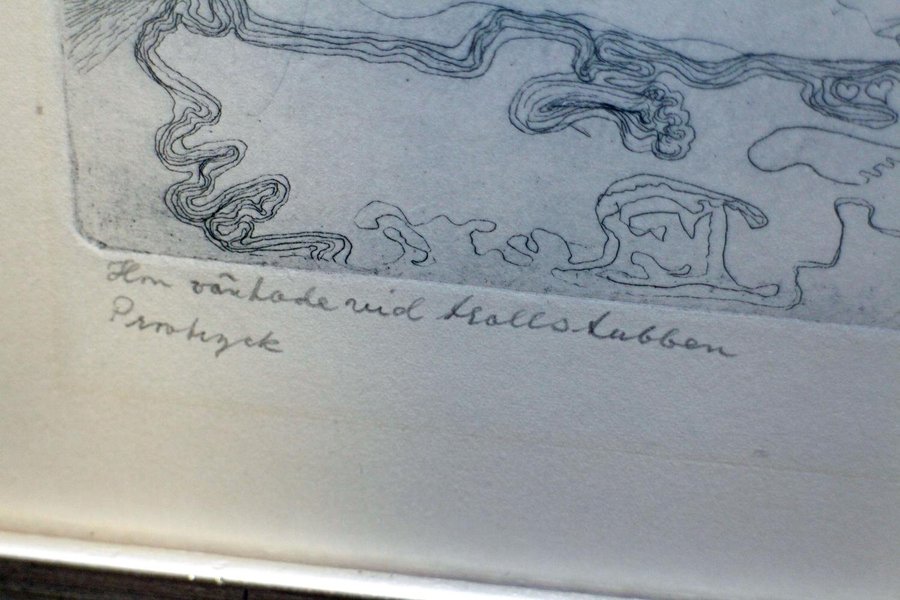 Hon väntade vid trollstubben
Provtryck